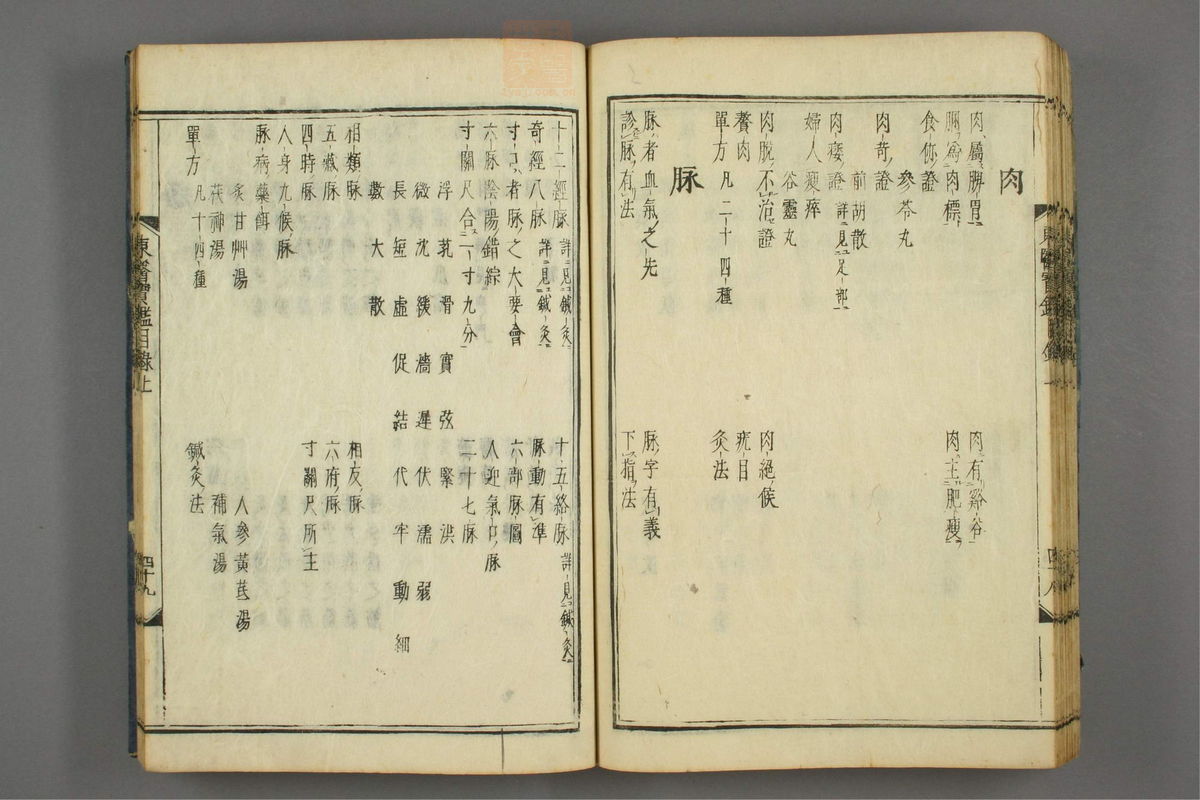 肉
肉屬脾胃 肉有谿谷
䐃為肉標 肉主肥瘦
食㑊證
參苓丸
肉苛證
前胡散
肉痿證 詳見足部
婦人瘦瘁
谷靈丸
肉脫不治證 肉絕候
贅肉 疣目
單方 凡二十四種 灸法
脈
脈者血氣之先 脈字有義
診脈有法 下指法
東醫寶鑑目錄
十二經脈 詳見鍼灸 十五絡脈 詳見鍼灸
奇經八脈 詳見鍼灸 脈動有準
寸口者脈之大要會 六部脈圖
六脈陰陽錯綜 人迎氣口脈
寸關尺合一寸九分 二十七脈
浮 芤 滑 實 弦 緊 洪
微 沈 緩 濇 遲 伏 濡 弱
長 短 虛 促 結 代 牢 動 細
數 大 散
相類脈 相反脈
五藏脈 六府脈
四時脈 寸關尺所主
人身九候脈
脈病藥餌
炙甘艸湯 人參黃芪湯
茯神湯 補氣湯
單方 凡十四種 鍼灸法
東醫寶鑑目錄上 四十九